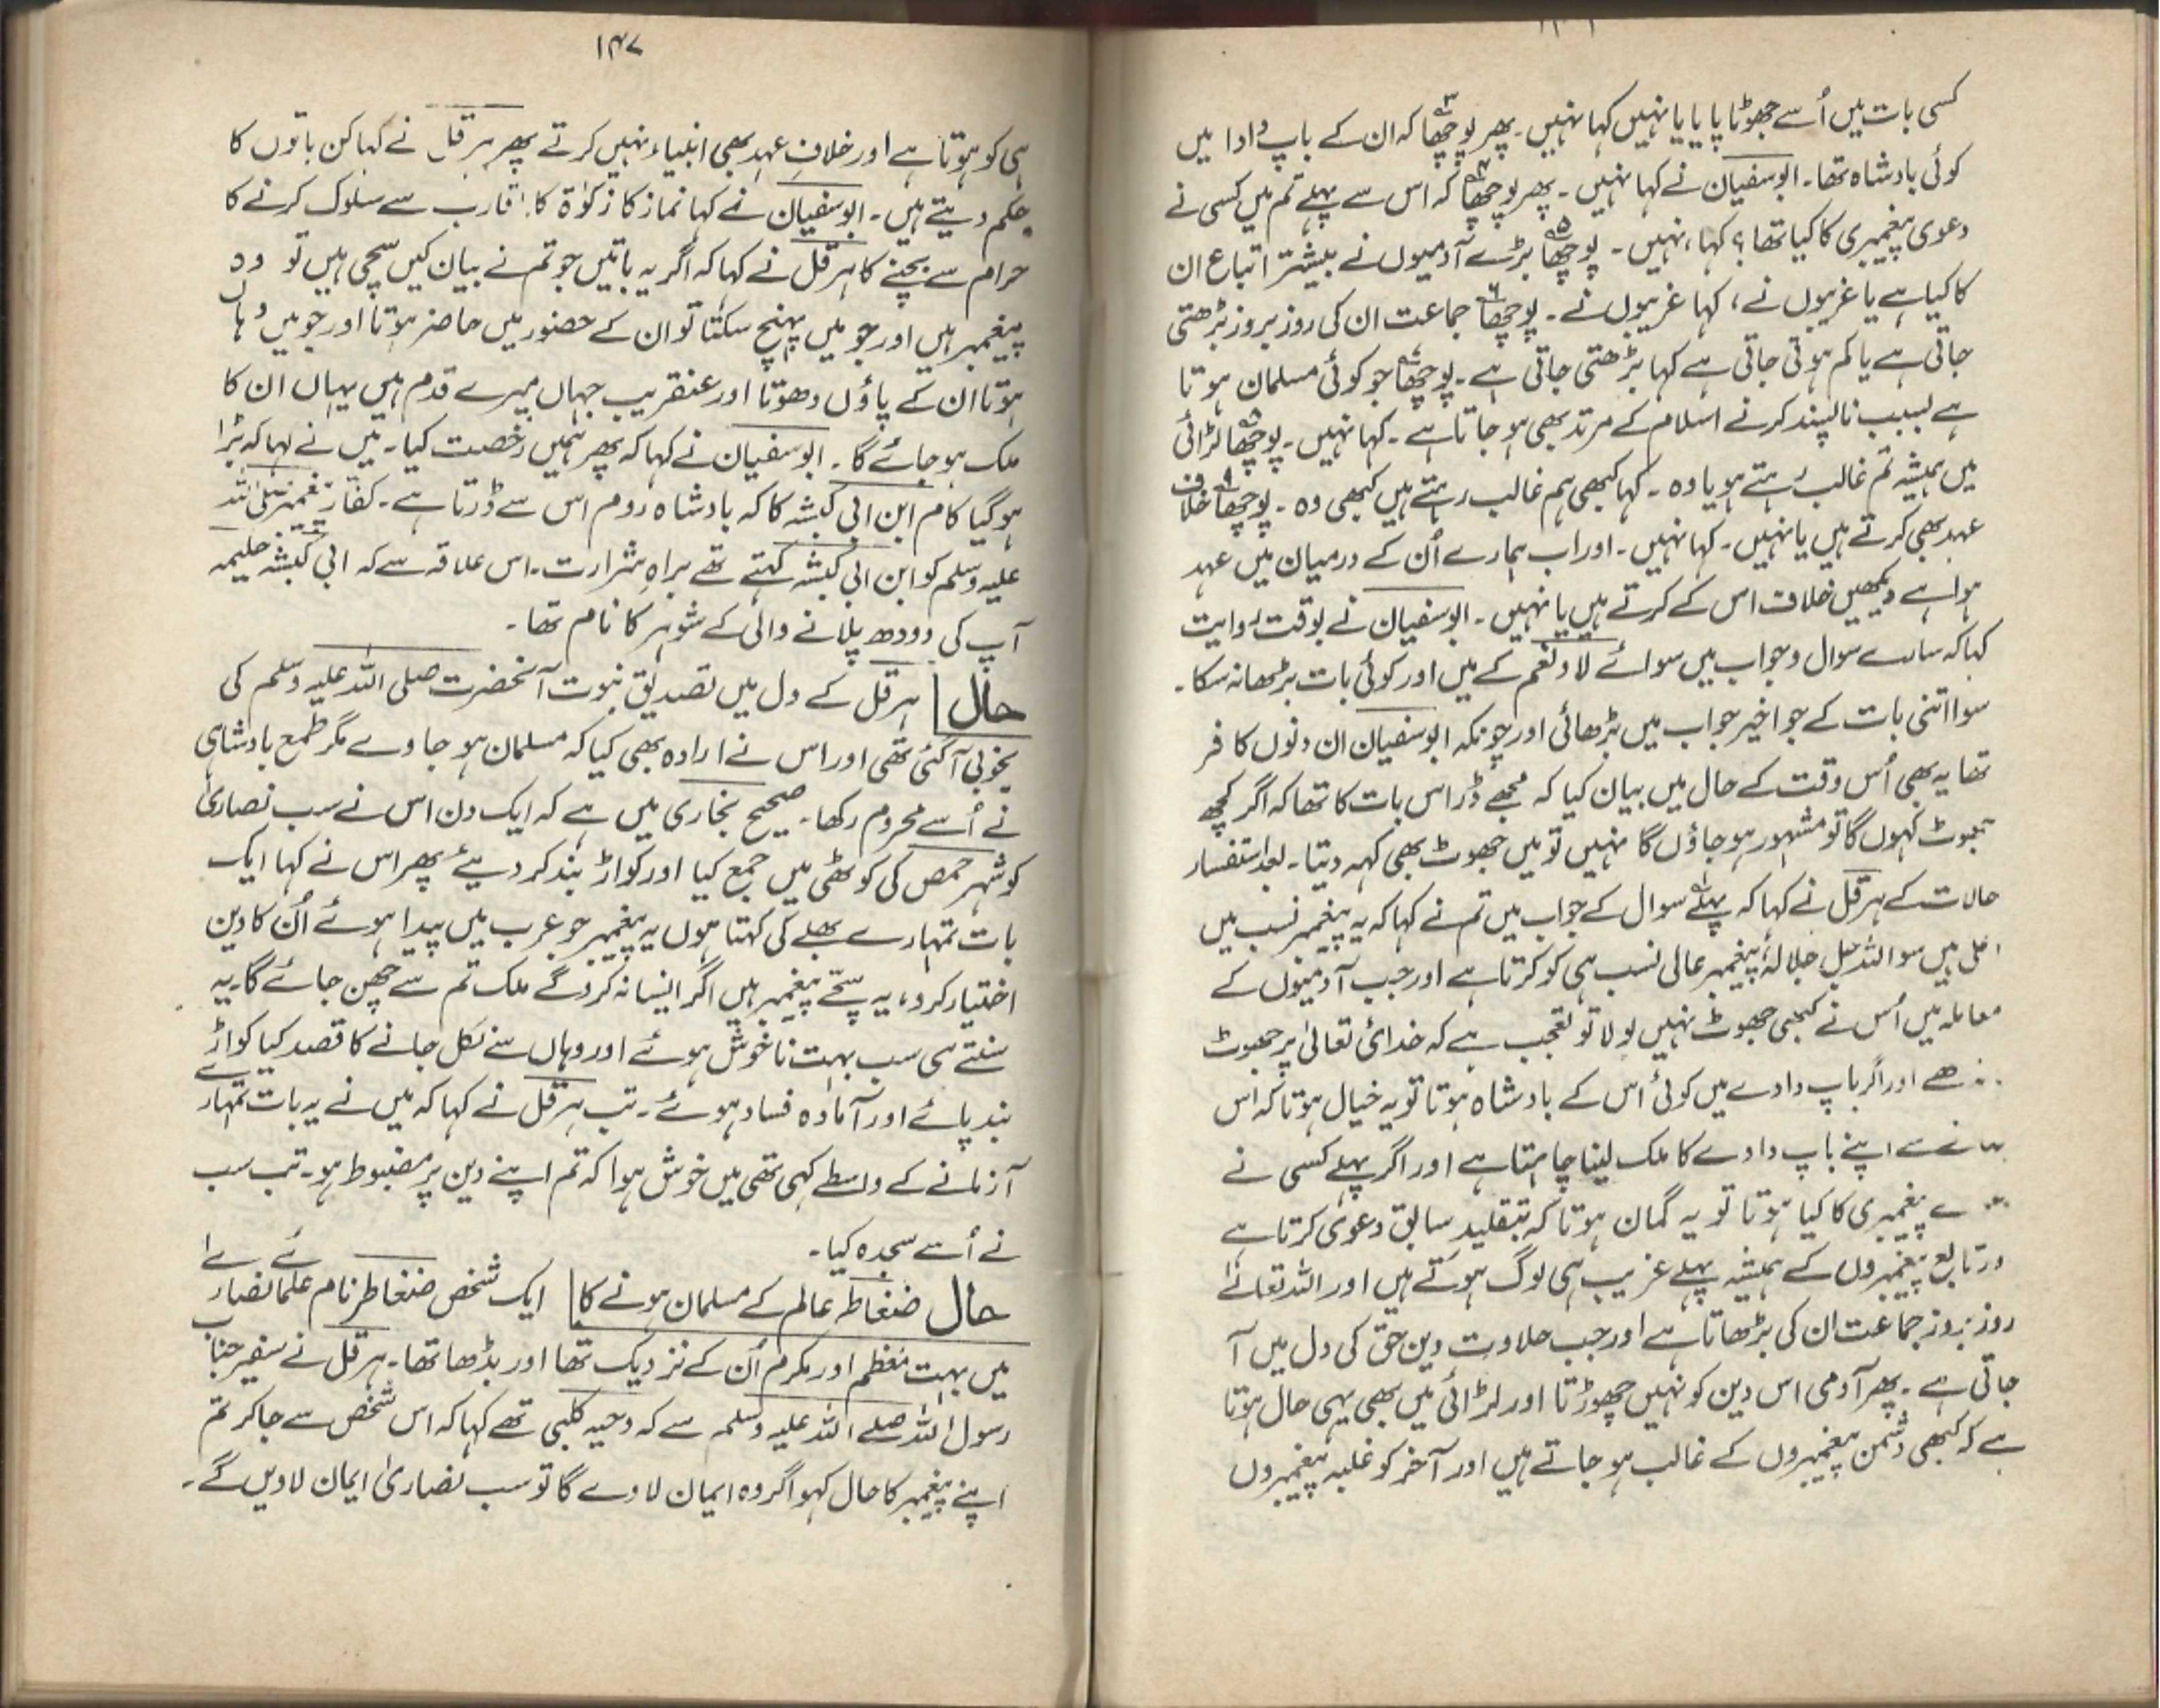 کسی بات میں اُسے جھوٹا پایا یا نہیں کہا نہیں۔ پھر پوچھا۳ کہ ان کے باپ دادا میں
کوئی بادشاہ تھا۔ ابوسفیان نے کہا نہیں۔ پھر پوچھا۴ کہ اس سے پہلے تم میں کسی نے
دعویٰ پیغمبری کا کیا تھا؟ کہا، نہیں۔ پوچھا۵ بڑے آدمیوں نے بیشتر اتباع ان
کا کیا ہے یا غریبوں نے، کہا غریبوں نے۔ پوچھا۶ جماعت ان کی روز بروز بڑھتی
جاتی ہے یا کم ہوتی جاتی ہے کہا بڑھتی جاتی ہے۔ پوچھا۷ جو کوئی مسلمان ہوتا
ہے بسبب ناپسند کرنے اسلام کے مرتد بھی ہو جاتا ہے۔ کہا نہیں۔ پوچھا۸ لڑائی
میں ہمیشہ تم غالب رہتے ہو یا وہ۔ کہا کبھی ہم غالب رہتے ہیں کبھی وہ۔ پوچھا۹ خلاف
عہد بھی کرتے ہیں یا نہیں۔ کہا نہیں۔ اور اب ہمارے اُن کے درمیان میں عہد
ہوا ہے دیکھیں خلاف اس کے کرتے ہیں یا نہیں۔ ابوسفیان نے بوقت روایت
کہا کہ سارے سوال و جواب میں سوائے لا و نعم کے میں اور کوئی بات بڑھا نہ سکا۔
سوا اتنی بات کے جو اخیر جواب میں بڑھائی اور چونکہ ابوسفیان ان دنوں کافر
تھا یہ بھی اُس وقت کے حال میں بیان کیا کہ مجھے ڈر اس بات کا تھا کہ اگر کچھ
جھوٹ کہوں گا تو مشہور ہو جاؤں گا نہیں تو میں جھوٹ بھی کہہ دیتا۔ بعد استفسار
حالات کے ہرقل نے کہا کہ پہلے سوال کے جواب میں تم نے کہا کہ یہ پیغمبر نسب میں
اعلیٰ ہیں سو اللہ جل جلالہٗ پیغمبر عالی نسب ہی کو کرتا ہے اور جب آدمیوں کے
معاملہ میں اُس نے کبھی جھوٹ نہیں بولا تو تعجب ہے کہ خدائ تعالیٰ پر جھوٹ
اور اگر باپ دادے میں کوئی اس کے بادشاہ ہوتا تو یہ خیال ہوتا کہ اس
اپنے باپ دادے کا ملک لینا چاہتا ہے اور اگر پہلے کسی نے
پیغمبری کا کیا ہوتا تو یہ گمان ہوتا کہ بتقلید سابق دعویٰ کرتا ہے
ور تابع پیغمبروں کے ہمیشہ پہلے غریب ہی لوگ ہوتے ہیں اور اللہ تعالےٰ
روز بروز جماعت ان کی بڑھاتا ہے اور جب حلاوت دین حق کی دل میں آ
جاتی ہے۔ پھر آدمی اس دین کو نہیں چھوڑتا اور لڑائی میں بھی یہی حال ہوتا
ہے کہ کبھی دشمن پیغمبروں کے غالب ہو جاتے ہیں اور آخر کو غلبہ پیغمبروں
۱۴۷
ہی کو ہوتا ہے اور خلافِ عہد بھی انبیاء نہیں کرتے پھر ہرقل نے کہا کن باتوں کا
حکم دیتے ہیں۔ ابوسفیان نے کہا نماز کا زکوٰۃ کا اقارب سے سلوک کرنے کا
حرام سے بچنے کا ہرقل نے کہا کہ اگر یہ باتیں جو تم نے بیان کیں سچی ہیں تو وہ
پیغمبر ہیں اور جو میں پہنچ سکتا تو ان کے حضور میں حاضر ہوتا اور جو میں وہاں
ہوتا ان کے پاؤں دھوتا اور عنقریب جہاں میرے قدم ہیں یہاں ان کا
ملک ہو جائے گا۔ ابوسفیان نے کہا کہ پھر ہمیں رخصت کیا۔ میں نے کہا کہ بڑا
ہو گیا کام ابن ابی کبشہ کا کہ بادشاہ روم اس سے ڈرتا ہے۔ کفار پیغمبر صلی اللہ
علیہ وسلم کو ابن ابی کبشہ کہتے تھے براہِ شرارت۔ اس علاقہ سے کہ ابی کبشہ حلیمہ
آپ کی دودھ پلانے والی کے شوہر کا نام تھا۔
حال ہرقل کے دل میں تصدیق نبوت آنحضرت صلی اللہ علیہ وسلم کی
بخوبی آ گئی تھی اور اس نے ارادہ بھی کیا کہ مسلمان ہو جاوے مگر طمع بادشاہی
نے اُسے محروم رکھا۔ صحیح بخاری میں ہے کہ ایک دن اس نے سب نصاریٰ
کو شہر حمص کی کوٹھی میں جمع کیا اور کواڑ بند کر دیئے پھر اس نے کہا ایک
بات تمہارے بھلے کی کہتا ہوں یہ پیغمبر جو عرب میں پیدا ہوئے اُن کا دین
اختیار کرو، یہ سچے پیغمبر ہیں اگر ایسا نہ کرو گے ملک تم سے چھن جائے گا۔ یہ
سنتے ہی سب بہت ناخوش ہوئے اور وہاں سے نکل جانے کا قصد کیا کواڑ
بند پائے اور آمادہ فساد ہوئے۔ تب ہرقل نے کہا کہ میں نے یہ بات تمہارے
آزمانے کے واسطے کہی تھی میں خوش ہوا کہ تم اپنے دین پر مضبوط ہو۔ تب سب
نے اُسے سجدہ کیا۔
حال ضغاطر عالم کے مسلمان ہونے کا ایک شخص ضغاطر نام علمائے نصاریٰ
میں بہت معظم اور مکرم اُن کے نزدیک تھا اور بڈھا تھا۔ ہرقل نے سفیر جناب
رسول اللہ صلے اللہ علیہ وسلم سے کہ دحیہ کلبی تھے کہا کہ اس شخص سے جا کر تم
اپنے پیغمبر کا حال کہو اگر وہ ایمان لاوے گا تو سب نصاریٰ ایمان لاویں گے۔